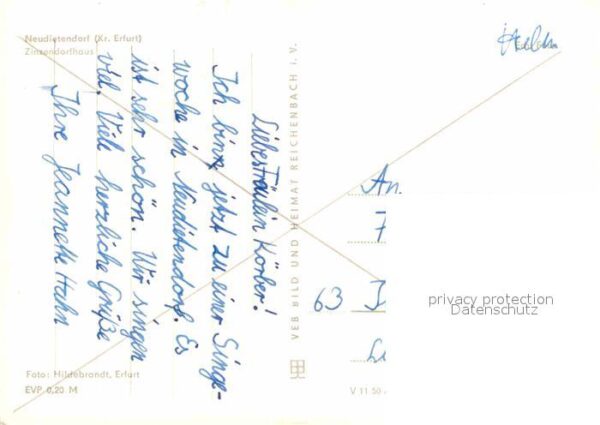 Neudietendorf (Kr. Erfurt)
Zinzendorfhaus
Liebes Fräulein Körber!
Ich bin jetzt zu einer Singe-
woche in Neudietendorf. Es
ist sehr schön. Wir singen
viel. Viele herzliche Grüße
Ihre Jeannette Hahn
VEB BILD UND HEIMAT REICHENBACH I. V.
An
63 I
privacy protection
Datenschutz
Foto: Hildebrandt, Erfurt
EVP 0,20 M
V 11 50